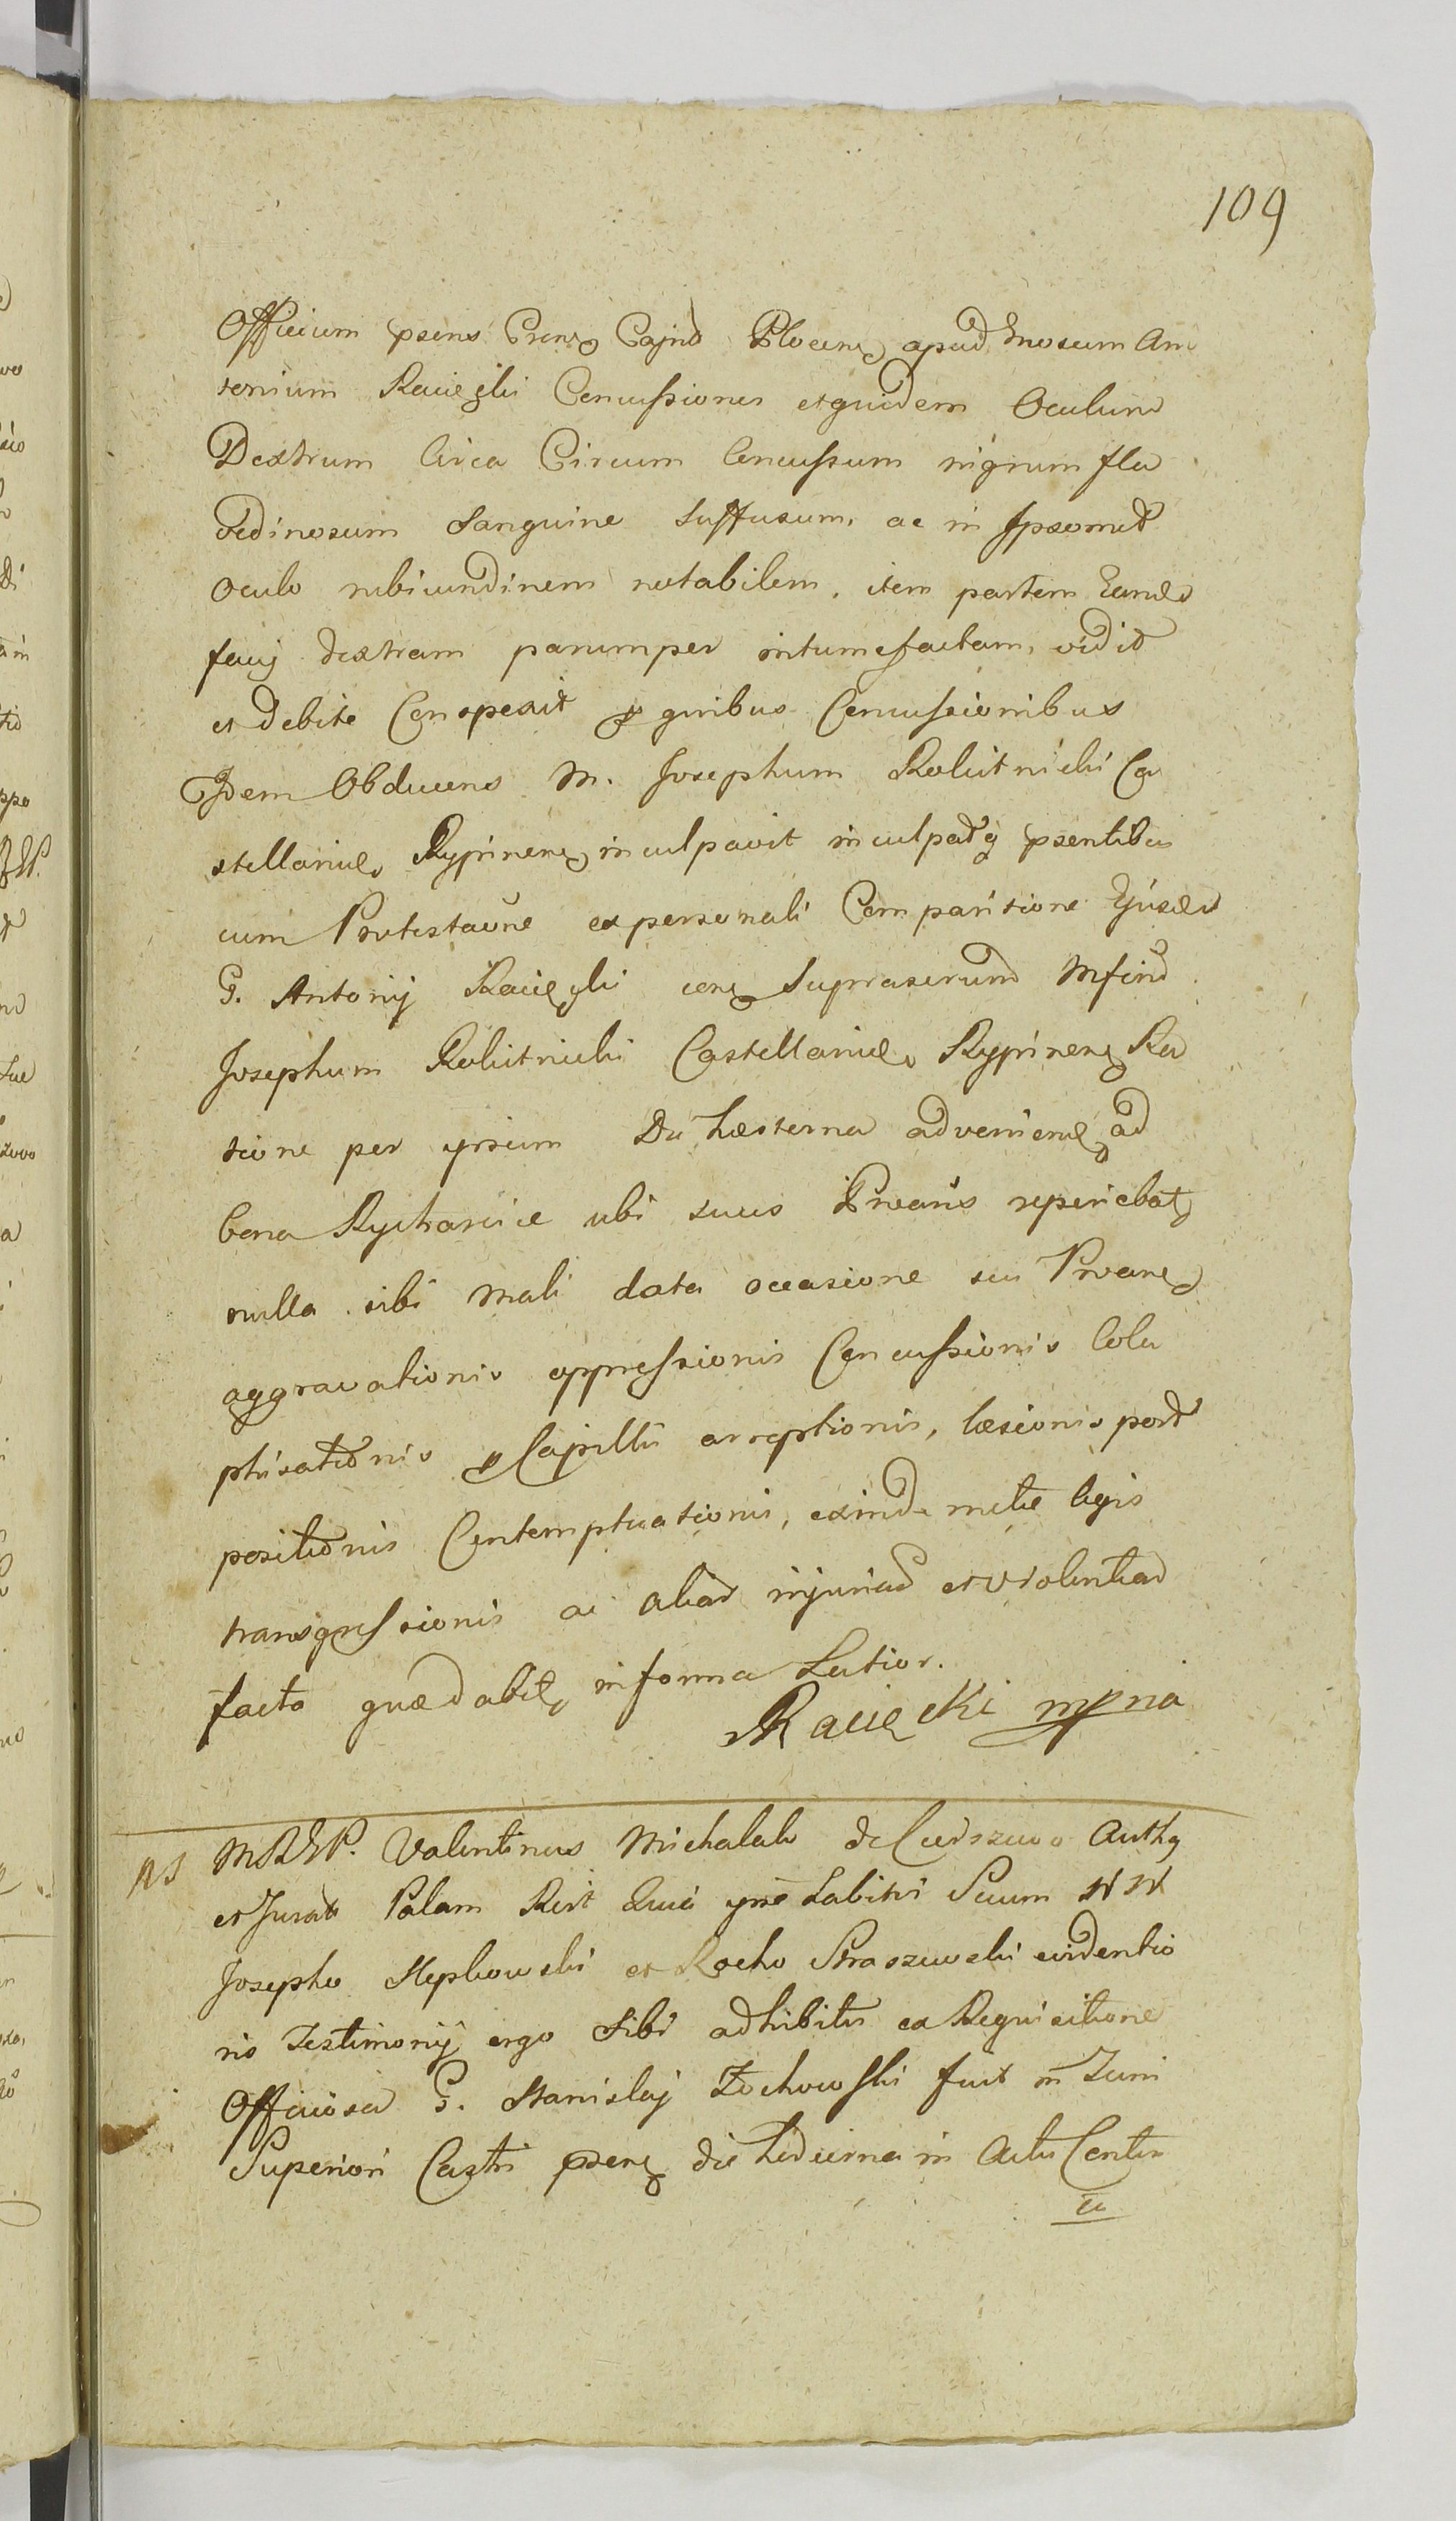 109
Officium psens Crense Capnd Plocens apud Gnosum An
tonium Racięzki Concussiones etquidem Oculum
Dextrum Circa Circum Concussum nigrum fla
vedinosum Sanguine Suffusum, ac in Ipsomet
Oculo rubicundinem notabilem, item partem
faciej dextram parumper intumefactam, vidit
et debite Conspexit p quibus Concussionibus
Idem Obducens M. Josephum Rokitnicki Ca
stellanid Rypinens inculpavit inculpatq psentibus
cum Protestaone ex personali Comparitione Ejusd
G. Antonij Racięzki cens suprascrund Mfind
Josephum Rokitnicki Castellanid Rypinens Ra
tione per ipsum Die Hesterna adveniend ad
bona Rycharcice ubi suus Proans reperiebat
nulla sibi Mali data occasione seu Proans
aggravationis oppressionis Concussionis Cola
phisationis p Capillis arreptionis, læsionis post
positionis Contemptuationis, exinde metæ legis
transgressionis ac aliad injuriad et violentiad
facto quædabit, in forma Latior.
Raciecki mpria
NS MRGP. Valentinus Michalak de Autħq
et Jurat Palam Rert Quia ipse Labitri Suum NN
Josepho Slepkowski et Rocho Straszewski evidentio
ris Testimonij ergo Sibi adhibitis ex Requisitione
Officiosa G. Stanislaj Żochowski fuit in Turri
Superiori Castri psens die Hodierna in Actu Contin
u